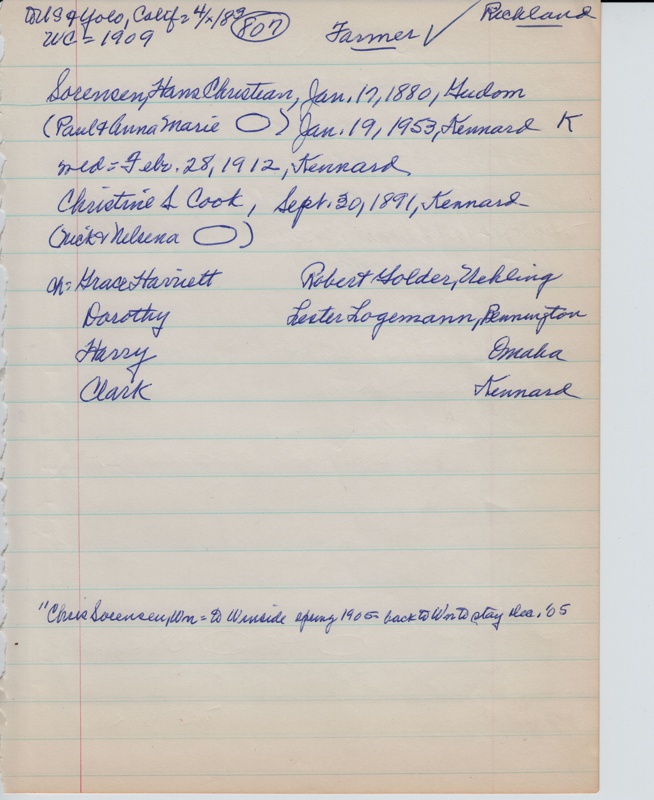 to US & Yolo, Calif = 4/x/189 807 Farmer ✓ Richland
WC = 1909
Sorensen, Hans Christian, Jan. 17, 1880, Gudom
(Paul & Anna Marie ) Jan. 19, 1953, Kennard K
md = Feb. 28, 1912, Kennard
Christine S Cook, Sept. 30, 1891, Kennard
(Nick & Nelsena )
ch = Grace Harriett Robert Golder, Uehling
Dorothy Lester Logemann, Bennington
Harry Omaha
Clark Kennard
"Chris Sorensen, Wn = to Winside spring 1905 = back to Wn to stay Dec. '05